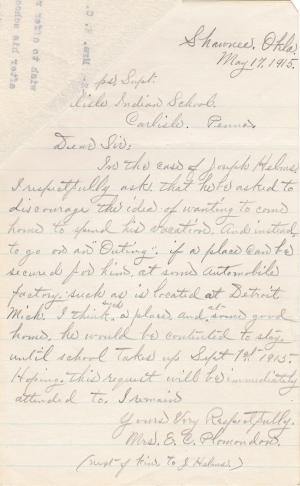 Shawnee, Okla.
May 17, 1915.
Supt.
lisle Indian School.
Carlisle. Penna.
Dear Sir:
In the case of Joseph Helms
I respectfully ask that he be asked to
discourage the idea of wanting to come
home to spend his vacation. And instead
to go on an "Outing". if a place can be
secured for him, at some automobile
factory, such as is located at Detroit
Mich. I think such a place, and at some good
home, he would be contented to stay
until school takes up Sept 1st 1915.
Hoping this request will be immediately
attended to. I remain
Yours Very Respectfully.
Mrs. E. E. Plomondon.
(next of kin to J Helms.)